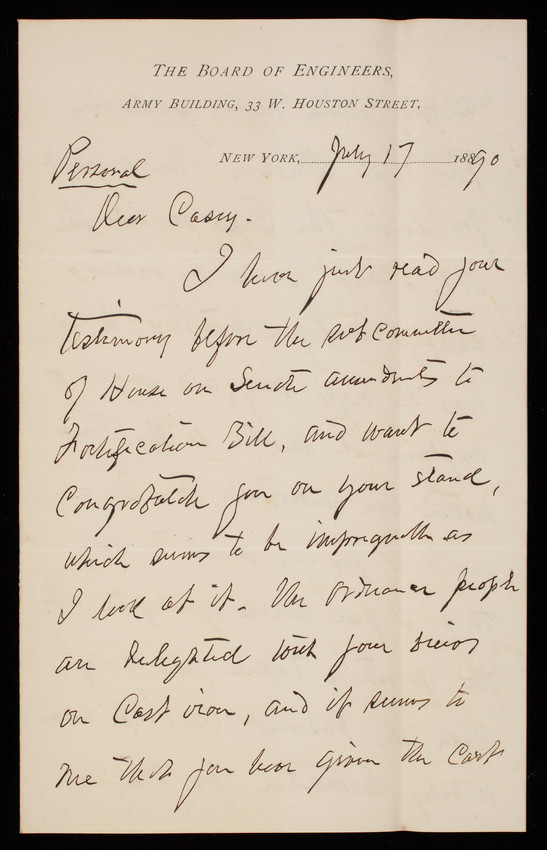 THE BOARD OF ENGINEERS,
ARMY BUILDING, 33 W. HOUSTON STREET,
NEW YORK, July 17 18890
Personal
Dear Casey.
I have just read your
testimony before the subcommittee
of House on Senate amendments to
Fortification Bill, and want to
Congratulate you on your stand,
which seems to be impregnable as
I look at it. The Ordnance people
are delighted with your views
on Cast iron, and it seems to
me that you have given the cast